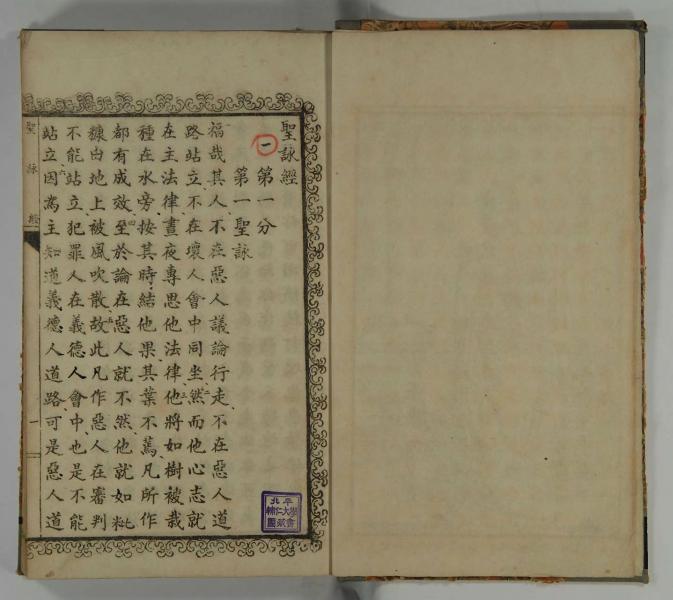 聖詠經
一 第一分
第一聖詠
福哉其人、不在惡人議論行走、不在惡人道
路站立、不在壞人會中同坐、然而他心志就
在主法律、晝夜專思他法律、他將如樹被栽
種在水旁、按其時結他果、其葉不蔫、凡所作
都有成效、至於論在惡人就不然、他就如粃
糠地上被風吹散、故此凡作惡人在審判
不能站立、犯罪人在義德人會中、也是不能
站立、因為主知道義德人道路、可是惡人道
聖詠經 一
北平
輔仁大學